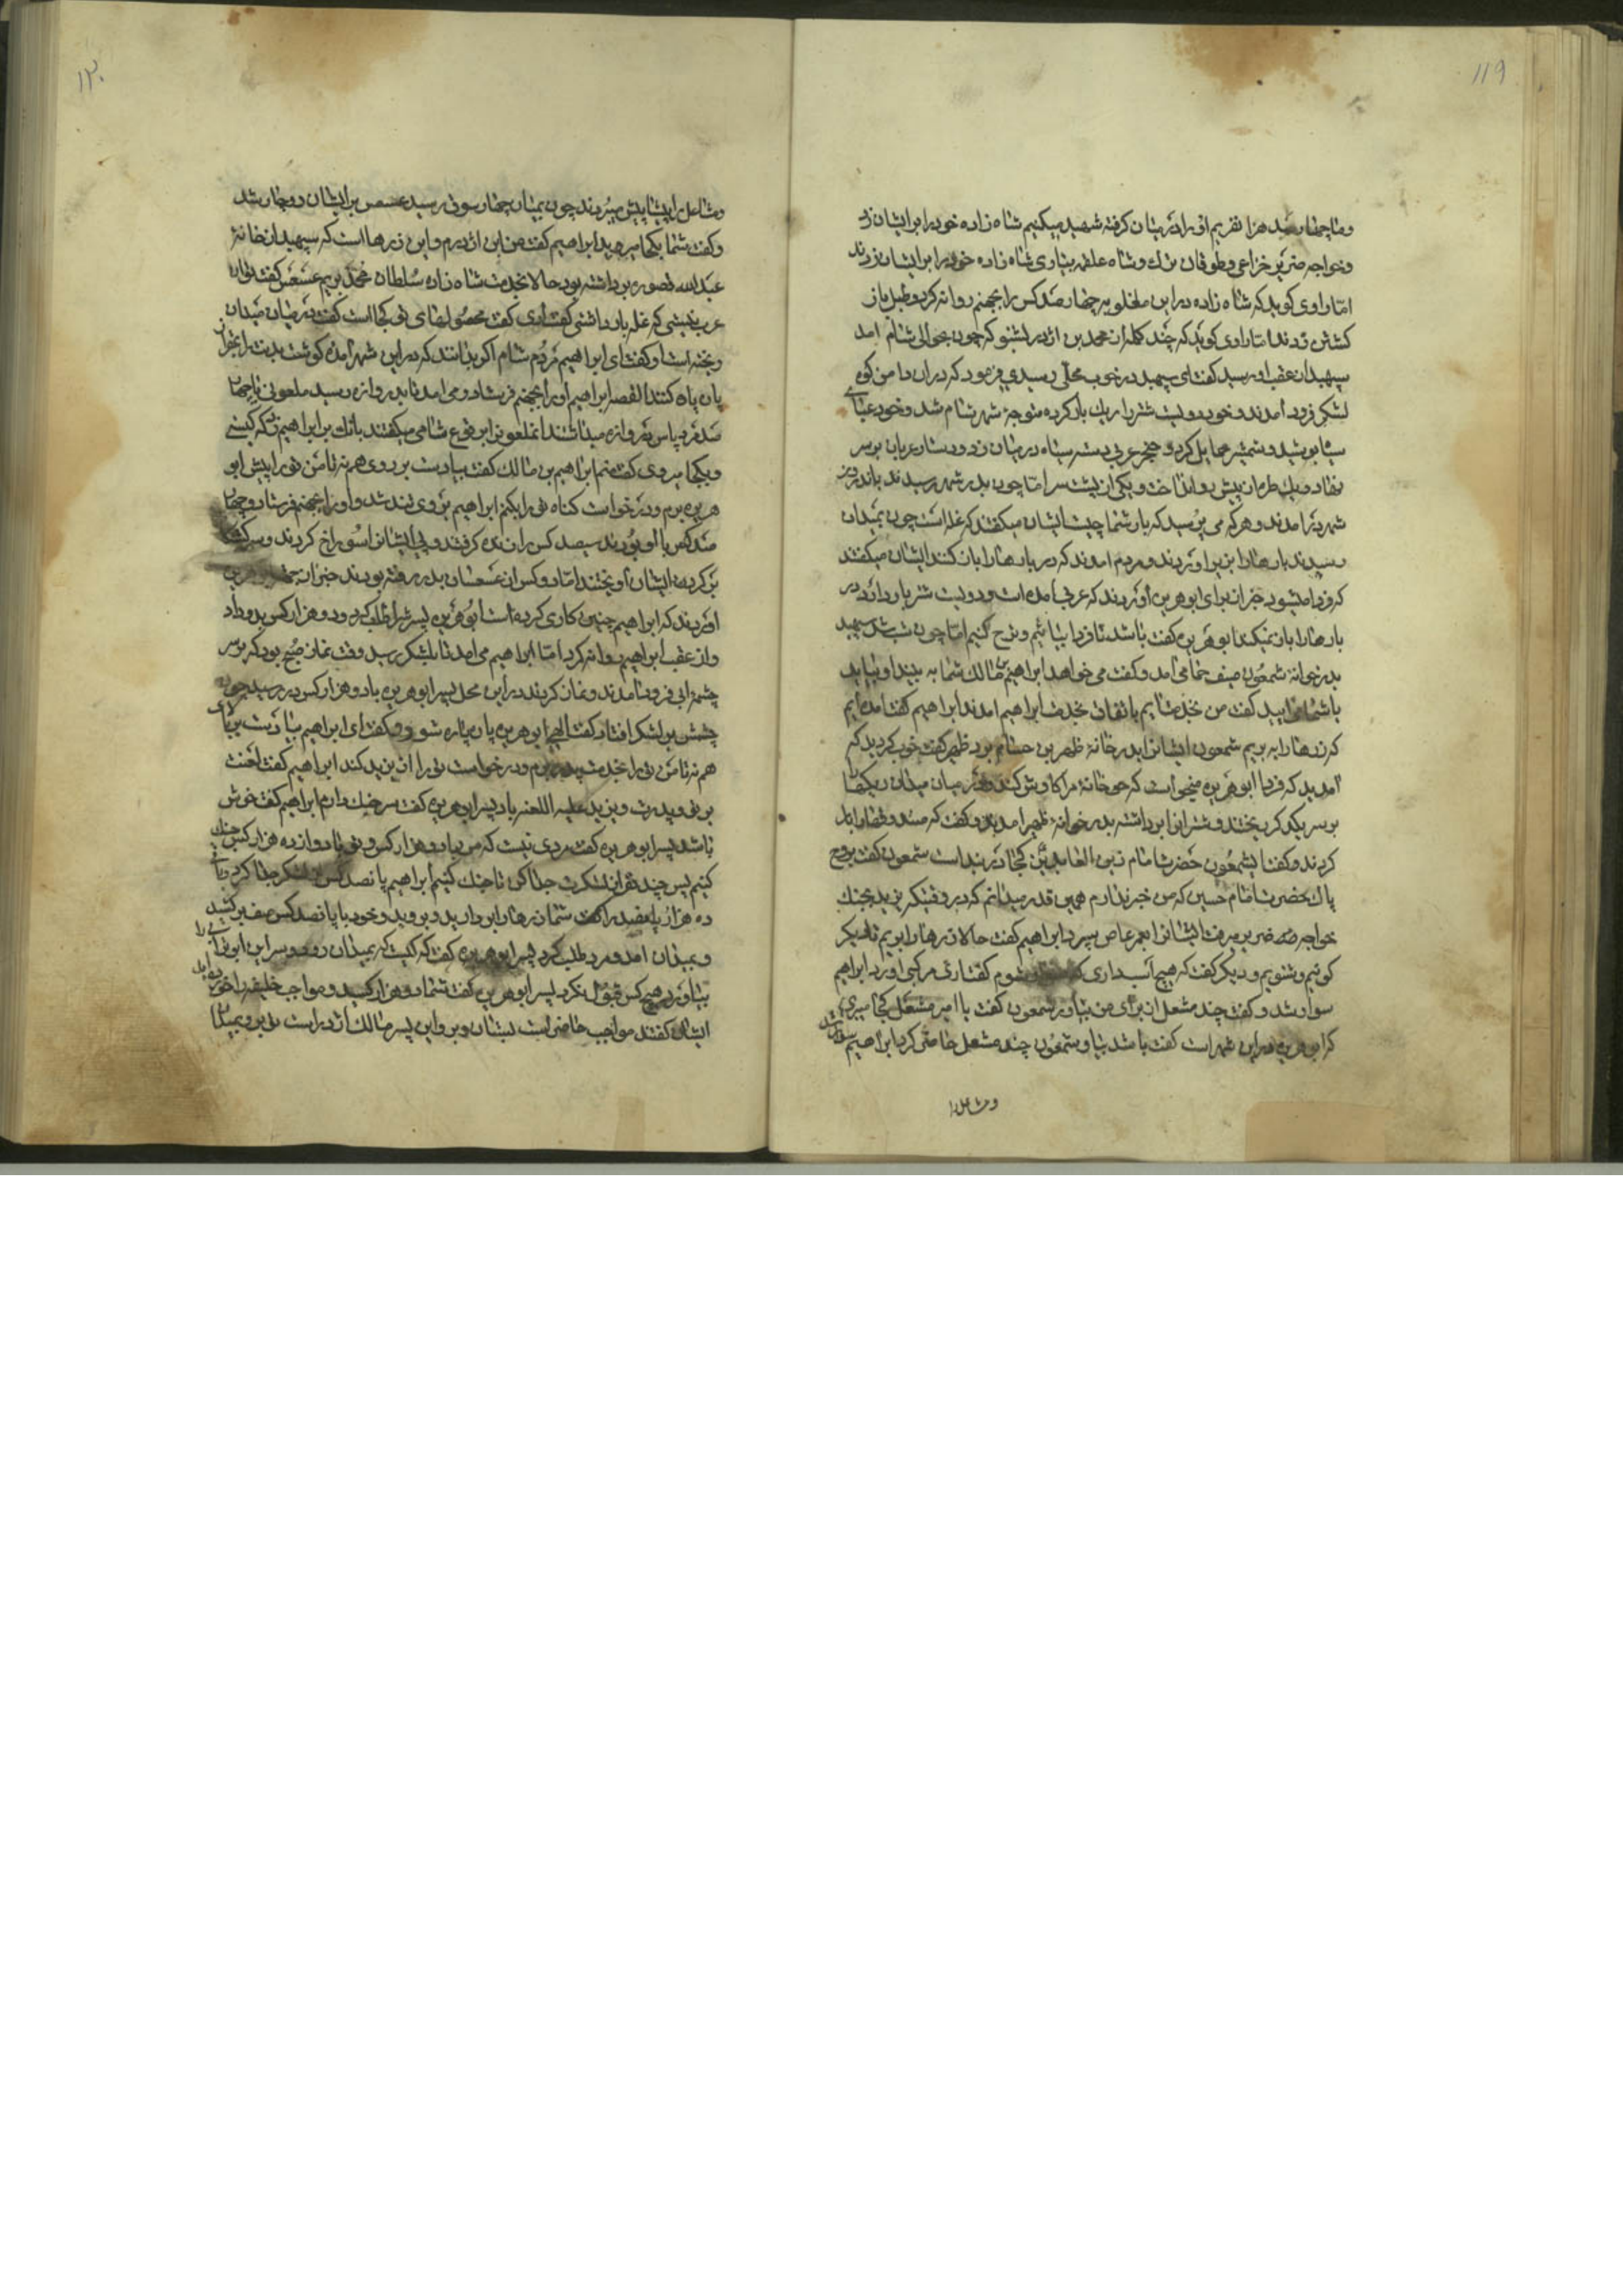 ۱۱۹
و ما چهارصد هزار نفریم او را در میان گرفته شهید میکنیم شاه زاده خود را بر ایشان زد
و خواجه ضریر خزاعی و طوغان ترک و شاه علقمه بیاری شاه زاده خود را بر ایشان زدند
اما راوی گوید که شاه زاده در این مغلوبه چهار صد کس را بجهنم روانه کرد و طبل باز
گشتن زدند اما راوی گوید که چند کلمه از محمد بن اژدر بشنو که چون بحوالی شام امد
سپهبد از عقب او رسید گفت ای سپهبد در خوب محلی رسیدی فرمود که در ان دامن کوه
لشکر فرود امدند و خود دویست شتر را ریک بار کرده متوجه شهر شام شد و خود عبای
سیاه پوشید و شمشیر حمایل کرد و خنجر عربی دسته سیاه در میان زد و دستار عربان بر سر
نهاد و یک طره از پیش رو انداخت و یکی از پشت سر اما چون بدر شهر رسیدند باندرون
شهر در امدند و هر که می پرسید که بار شما چیست ایشان میگفتند که غله است چون بمیدان
رسیدند بارها را بزیر اوردند و مردم امدند که در بارها را باز کنند ایشان میگفتند
که فردا میشود خبر از برای ابوهریره اوردند که عربی امده است و دویست شتر بار دارد و در
بارها را باز نمیکند ابوهریره گفت باشد تا فردا بیائیم و نرخ کنیم اما چون شب شد سپهبد
بدر خوانهٔ شمعون صیف حمامی امد و گفت می خواهد ابراهیم بن مالک شما به بیند او بیاید
با شما بیایید گفت من خدمت ایم باتفاق خدمت ابراهیم امدند ابراهیم گفت امده ایم
که زرها را به بریم شمعون ایشان را بدر خانهٔ ظهیر بن حسام برد ظهیر گفت خوب کردید که
امدید که فردا ابوهریره میخواست که خانهٔ مرا کاوش کند در میان میدان ریکها را
بر سر یکدیگر ریختند و شتران را برداشته بدر خوانهٔ ظهیر امدند و گفت که صندوقها را بار
کردند و گفت ای شمعون حضرت امام زین العابدین کجا در بند است شمعون گفت بروح
پاک حضرت امام حسین که من خبر ندارم همین قدر میدانم که در وقتیکه یزید بجنک
خواجه ضریر میرفت ایشان را بعمر عاص سپرد ابراهیم گفت حالا زرها را بریم تا فکر
کونیم و شنویم و دیگر گفت که هیچ اسب داری که شوم گفت اری مرکبی اورد ابراهیم
سوار شد و گفت چند مشعل از برای من بیاور شمعون گفت یا امیر مشعل کجا میبری
که ابوهریره در این شهر است گفت باشد بیاور شمعون چند مشعل حاضر کرد ابراهیم سوار شد
و مشاعل را
۱۲۰
و مشاعل را پیشاپیش میبردند چون بمیان چهار سوق رسید عسس بر ایشان دوچار شد
و گفت شما بکجا میروید ابراهیم گفت من ابن اژدرم و این زرها است که سپهبد از خانهٔ
عبدالله قصوره برداشته بود حالا بخدمت شاه زاده سلطان محمد بریم عسس گفت تو ان
عرب نیستی که غله بار داشتی گفت اری گفت محصولهای تو کجا است گفت در میان میدان
ریخته است و گفت ای ابراهیم مردم شام اکر بدانند که در این شهر امدهٔ گوشت بدنت را
پاره پاره کنند القصه ابراهیم او را بجهنم فرستاد و می امد تا بدروازه رسید ملعونی با چهار
صد مرد پاس دروازه میداشتند ان ملعون را ابن قوع شامی میگفتند بانک بر ابراهیم زد که کیستی
و بکجا میروی گفت منم ابراهیم بن مالک گفت بیا دست بر روی هم نه تا من تو را پیش ابو
هریره برم و درخواست گناه تو را بکنم ابراهیم بروی تند شد و او را بجهنم فرستاد و چهار
صد کس با او بودند سیصد کس را زنده گرفتند و پی ایشان را سوراخ کردند و
بر کرده ایشان را اویختند اما دو کس از عسسان بدر رفته بودند خبر از
اوردند که ابراهیم چنین کاری کرده است ابوهریره پسرش را طلب کرد و دو هزار کس بدو داد
و از عقب ابراهیم روانه کرد اما ابراهیم می امد تا بلشکر رسید وقت نماز صبح بود که بر سر
چشمهٔ ابی فرود امدند و نماز کردند در این محل پسر ابوهریره با دو هزار کس در رسید چون
چشمش بر لشکر افتاد گفت الهی ابوهریره پاره پاره شود و گفت ای ابراهیم بیا دست بر بالای
هم نه تا من تو را بخدمت پدر برم و درخواست تو را از یزید کند ابراهیم گفت لعنت
بر تو و پدرت و یزید علیه اللعنه باد پسر ابوهریره گفت سر جنک دارم ابراهیم گفت خوش
باشد پسر ابوهریره گفت مردی نیست که من با دو هزار کس و تو با دوازده هزار کس جنک
کنیم پس چند نفر از لشکرت جدا کن تا جنک کنیم ابراهیم پانصد کس از لشکر جدا کرد و باقی
ده هزار و پانصد را گفت شما زرها را بردارید و بروید و خود با پانصد کس صف بر کشید
و بمیدان امد و مرد طلب کرد پسر ابوهریره گفت که کیست که بمیدان رود و سر این ابوترابی را
بیاورد هیچ کس قبول نکرد پسر ابوهریره گفت شما دو هزار کسید و مواجب خلیفه را خورده اید
ایشان گفتند مواجب حاضر است بستان و برو این پسر مالک اژدر است تو برو بمیدان